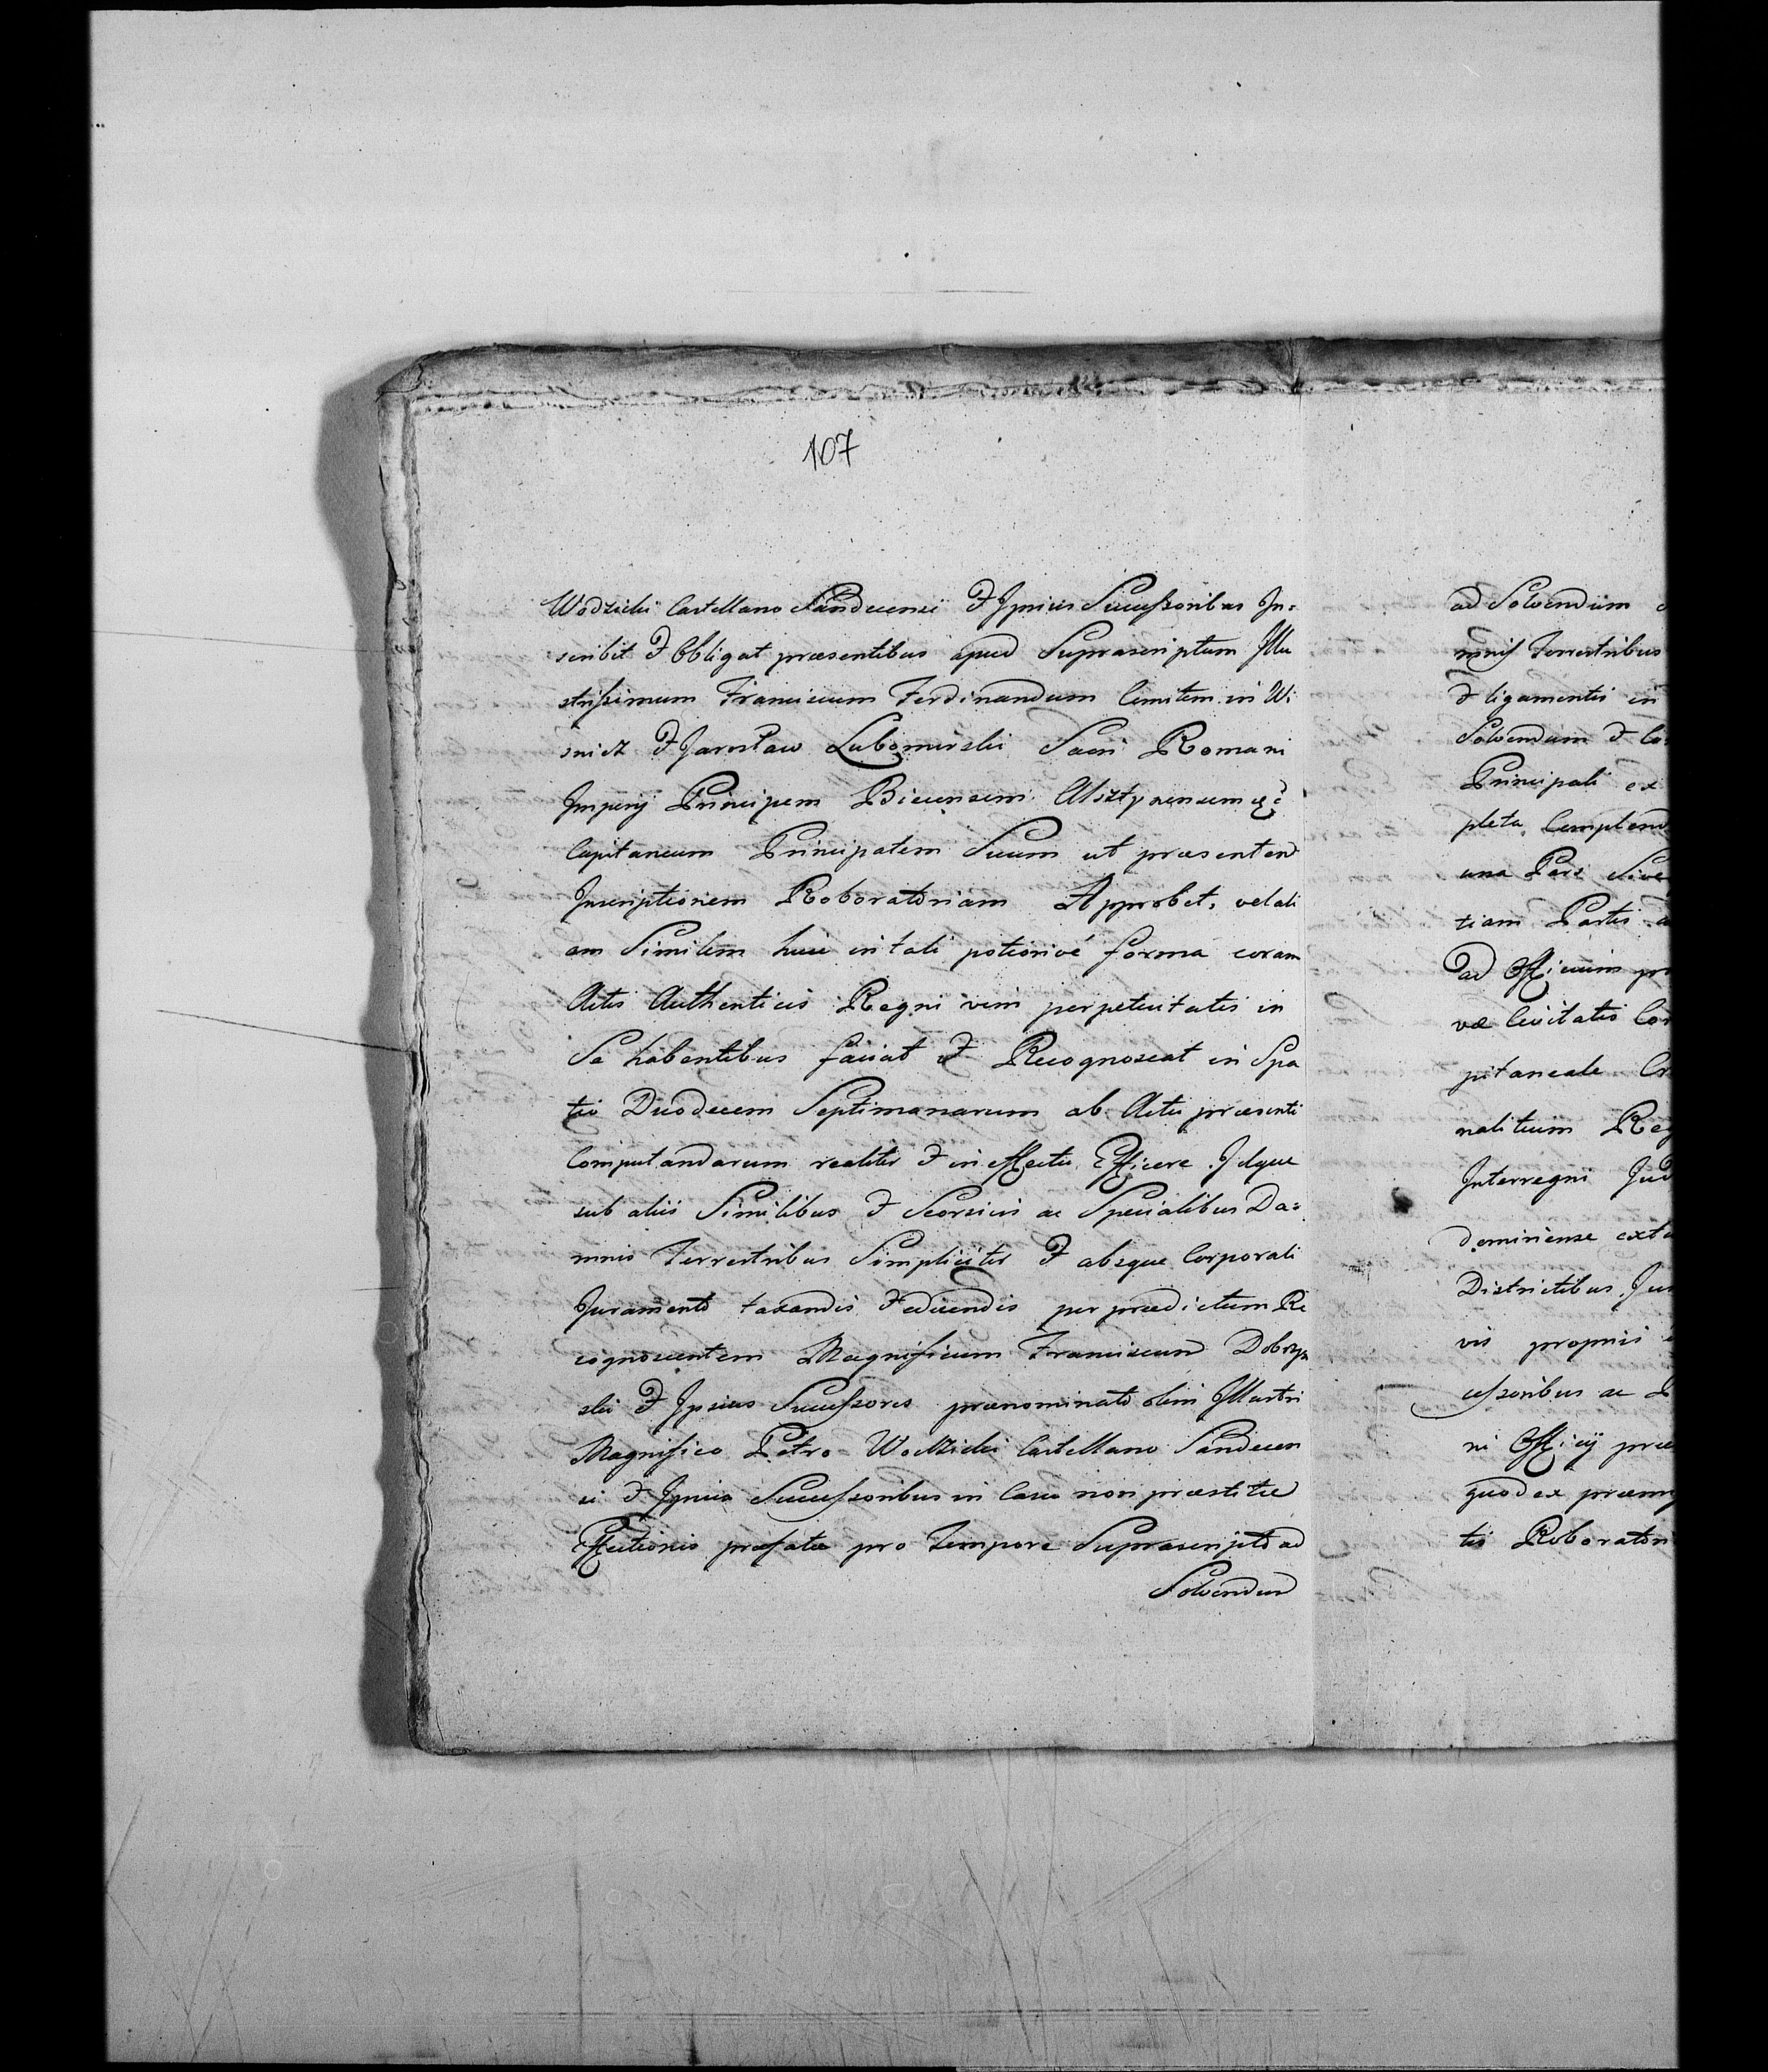 107
Wodzicki Castellano Sandecensi & Ipsius Successoribus In=
scribit & Obligat præsentibus apud Suprascriptum Illu
strissimum Franciscum Ferdinandum Comitem in Wi
snicz & Jarosław Lubomirski Sacri Romani
Imperij Principem Biecensem Olsztynensemq&
Capitaneum Principalem Suum ut præsentem
Inscriptionem Roboratoriam Approbet, vel ali
am Similem huic in tali potiorivé forma coram
Actis Authenticis Regni vim perpetuitatis in
Se habentibus faciat & Recognoscat in Spa
tio Duodecem Septimanarum ab Actu præsenti
Computandarum realiter & in effectu Efficere. Idque
sub aliis Similibus & Seorsivis ac Specialibus Da=
mnis Terrestribus Simpliciter & absque Corporali
Juramento taxandis & edicendis per prædictum Re
cognoscentem Magnificum Franciscum Dobrzyn
ski & Ipsius Successores prænominato olim Illustri
Magnifico Petro Wodzicki Castellano Sandecen
si & Ipsius Successoribus in Casu non præstitæ
Effectionis præfatæ pro Tempore Suprascripto ad
Solvendum
ad Solvendum
mnis Terrestribus
& ligamentis in
Solvendum & Co
Principali ex
pleta Complend
una Pars Sive
tiam Partis
ad Officium pr
væ Civitatis Cor
pitaneale Cr
nalitium Reg
Interregni Jud
dominiense exta
Districtibus Jur
vis propriis
cessoribus ac
ni Officij præ
quod ex præmi
tio Roboratori